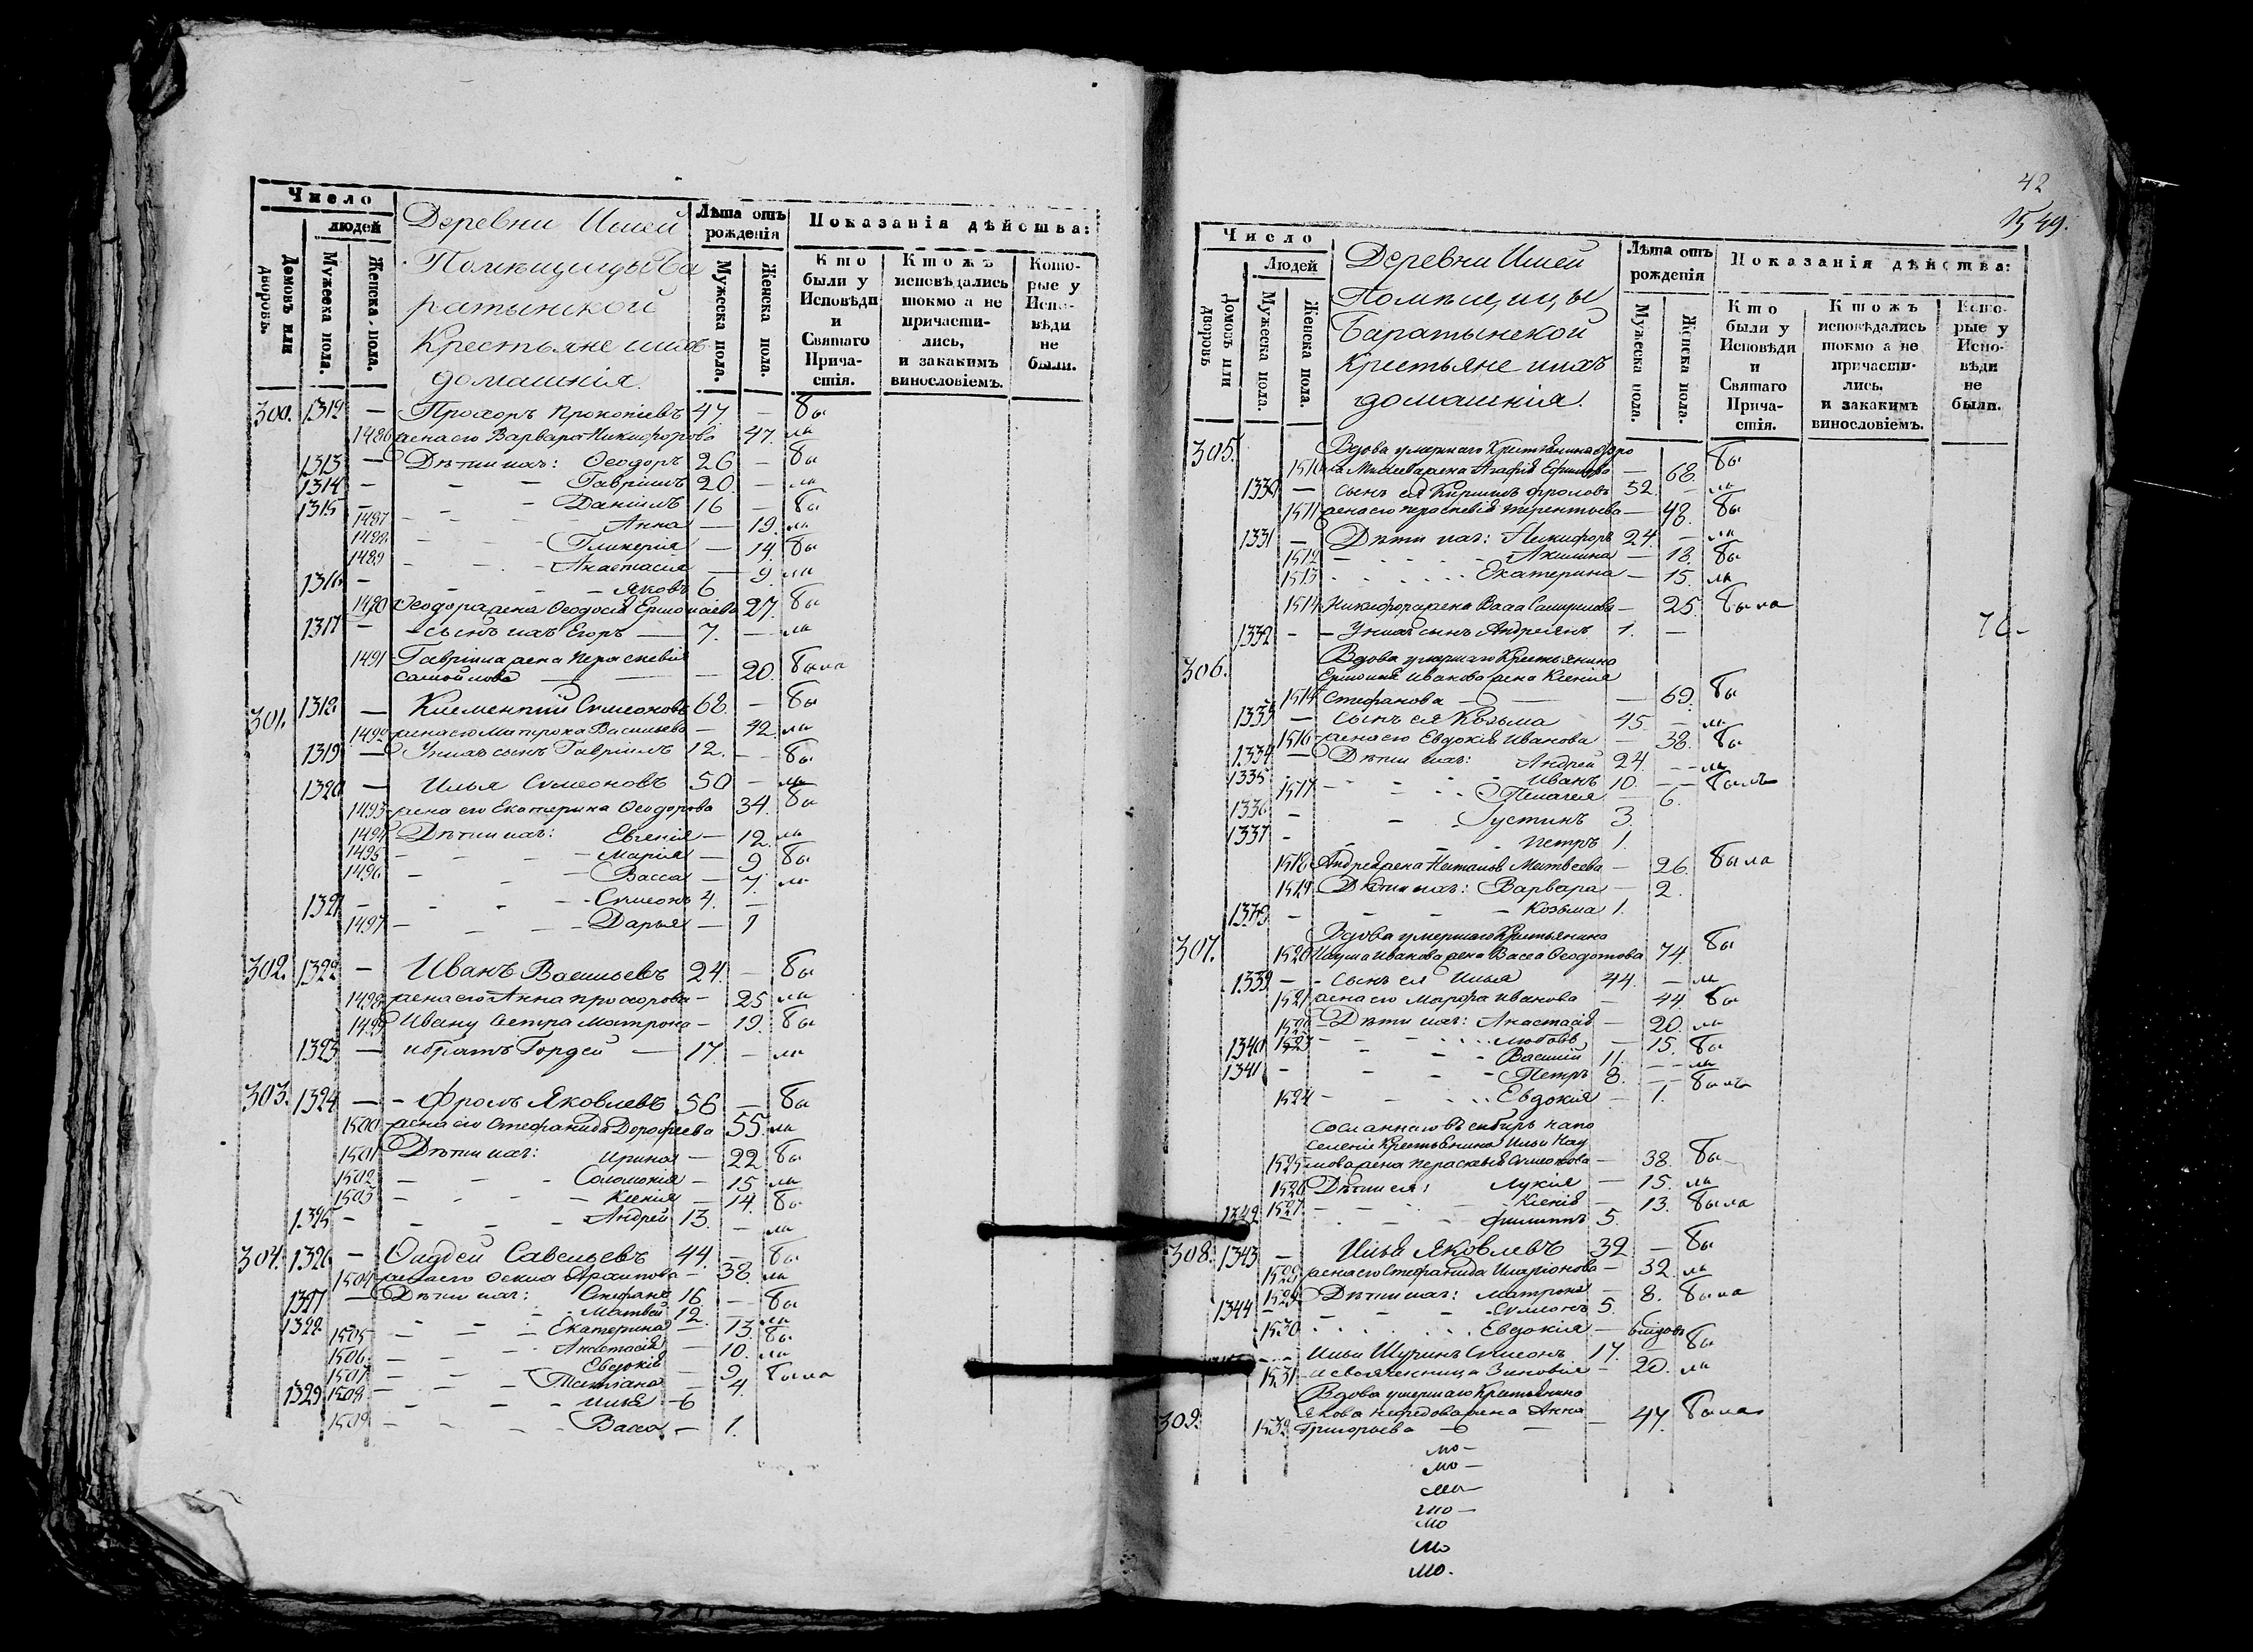 Число
людей
Домовъ или дворовъ.
Мужеска пола.
Женска пола.
Деревни Ишей
Помѣщицы Ба
ратынской
Крестьяне ихъ
домашнія.
Лѣта отъ рожденія
Мужеска пола.
Женска пола.
Показанія дѣйства:
Кто были у Исповѣди и Святаго Причастія.
Ктожъ исповѣдались токмо а не причастились, и закакимъ винословіемъ.
Которые у Исповѣди не были.
300. 1312 — Прохоръ Прокопіевъ 47 — бы
1486 жена его Варвара Никифорова 47. ли
1313 — Дѣти ихъ: Ѳеодоръ 26 — бы
1314 — — — Гавріилъ 20. — ли
1315 — — Даніилъ 16 — бы
1487 — — Анна — 19. ли
1488 — — Гликерія — 14 бы
1489 — — Анастасія — 9. ли
1316 — — — Яковъ 6
1490 Ѳеодора жена Ѳеодосія 27. бы
1317 — сынъ ихъ Егоръ — 7. — ли
1491 Гавріила жена Параскевія
Самойлова — — 20. была
301. 1318 — Климентій Симеоновъ 68. — бы
1492 жена его Матрона Васильева — 42. ли
1319 — У нихъ сынъ Гавріилъ 12. — бы
1320 — Илья Симеоновъ 50 — ли
1493 жена его Екатерина Ѳеодорова 34. бы
1494 Дѣти ихъ: Евгенія — 12. ли
1495 — — Марія — 9 бы
1496 — — Васса — 7. ли
1321 — — Симеонъ 4. —
1497 — — Дарья — 1
302. 1322 — Иванъ Васильевъ 24. — бы
1498 жена его Анна Прохорова — 25 ли
1499 Ивану сестра Матрона — 19. бы
1323 — и братъ Гордей — 17. — ли
303. 1324 — Фролъ Яковлевъ 56 — бы
1500 жена его Стефанида Дорофеева 55. ли
1501 Дѣти ихъ: Ирина — 22 бы
1502 — — Соломонія — 15 ли
1503 — — Ксенія — 14. бы
1325 — — Андрей 13. — ли
304. 1326 — Савельевъ 44. — бы
1504 жена его Архипова — 38. ли
1327 — Дѣти ихъ: Стефанъ 16 — бы
1328 — — Матвей 12. — ли
1505 — — Екатерина — 13. бы
1506 — — Анастасія — 10. ли
1507 — — Евдокія — 9 была
1508 — — Татіана — 4.
1329 — — Илья — 6
1509 — — Васса — 1.
42
Число
Людей
Домовъ или дворовъ
Мужеска пола.
Женска пола.
Деревни Ишей
Помѣщицы
Баратынской
Крестьяне ихъ
домашнія.
Лѣта отъ рожденія
Мужеска пола.
Женска пола.
Показанія дѣйства:
Кто были у Исповѣди и Святаго Причастія.
Ктожъ исповѣдались токмо а не причастились. и закакимъ винословіемъ.
Которые у Исповѣди не были.
305. Вдова умершаго Крестьянина Фро
1510 ла жена Агафія Ефимова — 68. бы
1330 — сынъ ея Кирилъ Фроловъ 52. — ли
1511 жена его Параскевія Терентьева — 48. бы
1331 — Дѣти ихъ: Никифоръ 24. — ли
1512 — — Акилина — 18. бы
1513 — — Екатерина — 15. ли
1514 Никифора жена Васса — 25. была
1332 — — У нихъ сынъ Андреянъ 1. —
306. Вдова умершаго Крестьянина
Иванова жена Ксенія
Стефанова — — 69. бы
1333 — сынъ ея Козьма 45. — ли
1516 жена его Евдокія Иванова — 38. бы
1334 — Дѣти ихъ: Андрей 24. — ли
1335 — — Иванъ 10. — былъ
1517 — — Пелагея — 6.
1336 — — Густинъ 3.
1337 — — Петръ 1.
1518 Андрея жена Наталья Матвеева — 26. была
1519 Дѣти ихъ: Варвара — 2.
— — Козьма 1.
307. Вдова умершаго Крестьянина
1520 Наума Иванова жена Васса Ѳеодотова 74. бы
1339 — сынъ ея Илья 44. — ли
1521 жена его Марфа Иванова — 44 бы
1522 Дѣти ихъ: Анастасія — 20. ли
1523 — — Любовь — 15. бы
1340 — — Василій 11. — ли
1341 — — Петръ 8. — былъ
1524 — — Евдокія — 1.
Сосланнаго въ сибирь на по
селеніе Крестьянина Ильи Нау
1525 мова жена Параскевія Симеонова — 38. бы
1526 Дѣти ея: Лукія — 15. ли
1527 — — Ксенія — 13. была
1342 — — Филиппъ 5.
308. 1343 — Илья Яковлевъ 32 — бы
1528 жена его Стефанида Иларіонова — 32. ли
1529 Дѣти ихъ: Матрона — 8. была
1344 — — Симеонъ 5.
1530 — — Евдокія —
Ильи Шуринъ Симеонъ 17. — бы
1531 и свояченица Зиновія — 20. ли
Вдова умершаго Крестьянина
309. Якова жена Анна
1532 Григорьева — — 47. была